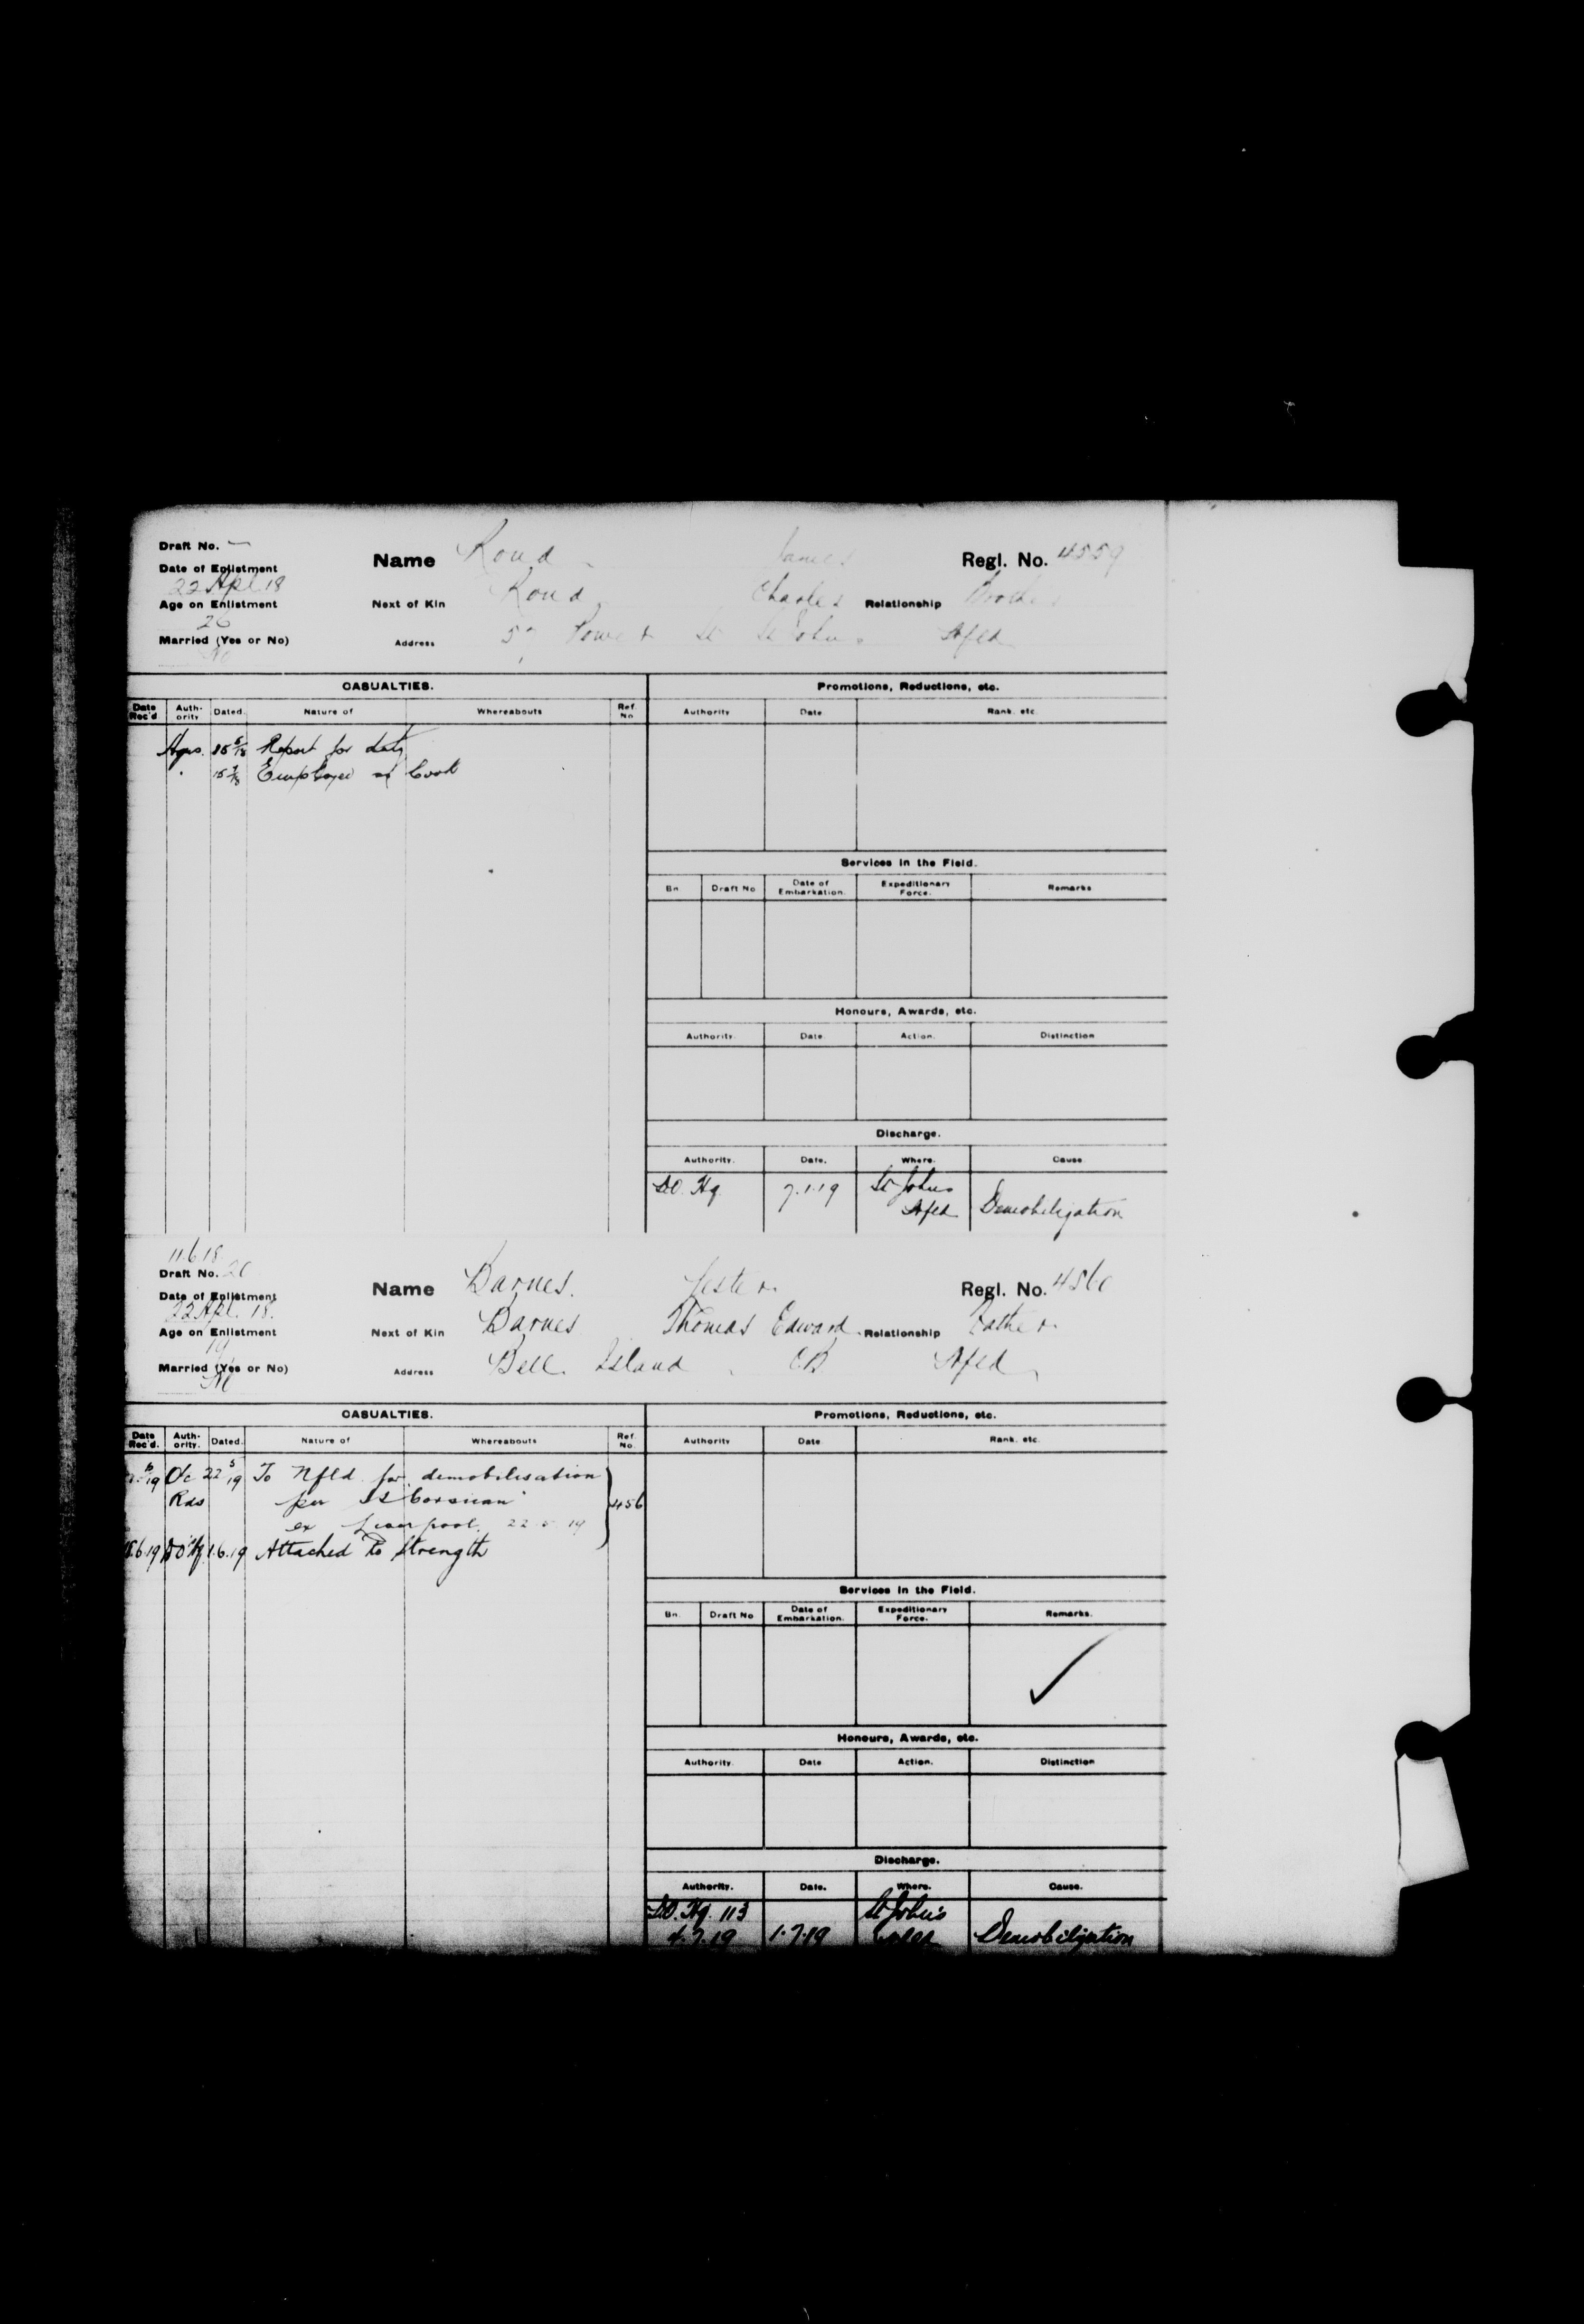 Draft No. —
Name Roud James Regl. No. 4559
Date of Enlistment
22 Apl. 18
Age on Enlistment Next of Kin Roud Charles Relationship Brother
26
Married (Yes or No) Address 57 Power St St Johns Nfld
No
CASUALTIES. Promotions, Reductions, etc.
Date Rec'd Auth-ority Dated. Nature of Whereabouts Ref. No Authority Date Rank. etc.
Hqrs. Report for duty
Employed as Cook
Services in the Field.
Bn Draft No Date of Embarkation. Expeditionary Force. Remarks
Honours, Awards, etc.
Authority. Date Action. Distinction
Discharge.
Authority. Date. Where. Cause
D.O. Hq. 7.1.19 St Johns Nfld Demobilization
11.6.18
Draft No.
Name Barnes. Lester. Regl. No. 4560
Date of Enlistment
22 Apl. 18.
Age on Enlistment Next of Kin Barnes Thomas Edward. Relationship Father.
19
Married (Yes or No) Address Bell Island C.B Nfld
No
CASUALTIES. Promotions, Reductions, etc.
Date Rec'd. Auth-ority. Dated. Nature of Whereabouts Ref. No. Authority Date Rank. etc.
O/c 22 5/19 To Nfld for demobilisation
Rds per SS Corsican 456
ex Liverpool. 22.5.19
D.O. Hq 1.6.19 Attached to Strength
Services in the Field.
Bn. Draft No Date of Embarkation. Expeditionary Force. Remarks.
Honours, Awards, etc.
Authority. Date Action. Distinction
Discharge.
Authority. Date. Where. Cause.
D.O. Hq. 113 St John's
4.7.19 1.7.19 Demobilization